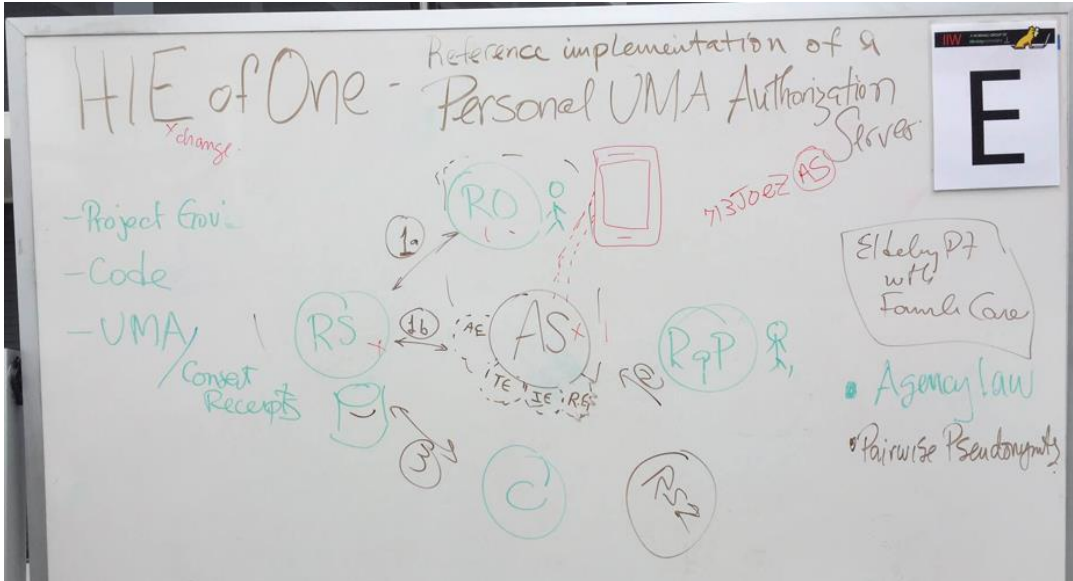 HIE of One -
Reference implementation of a
Personal UMA Authorization
Server
xchange
IIW
E
RO
AS
- Project Gov.
- Code
- UMA/
Consent
Receipts
1a
RS
1b
AE
AS
TE
IE
RqP
2
3
C
Elderly PT
with
Family Care
• Agency law
• Pairwise Pseudonymity